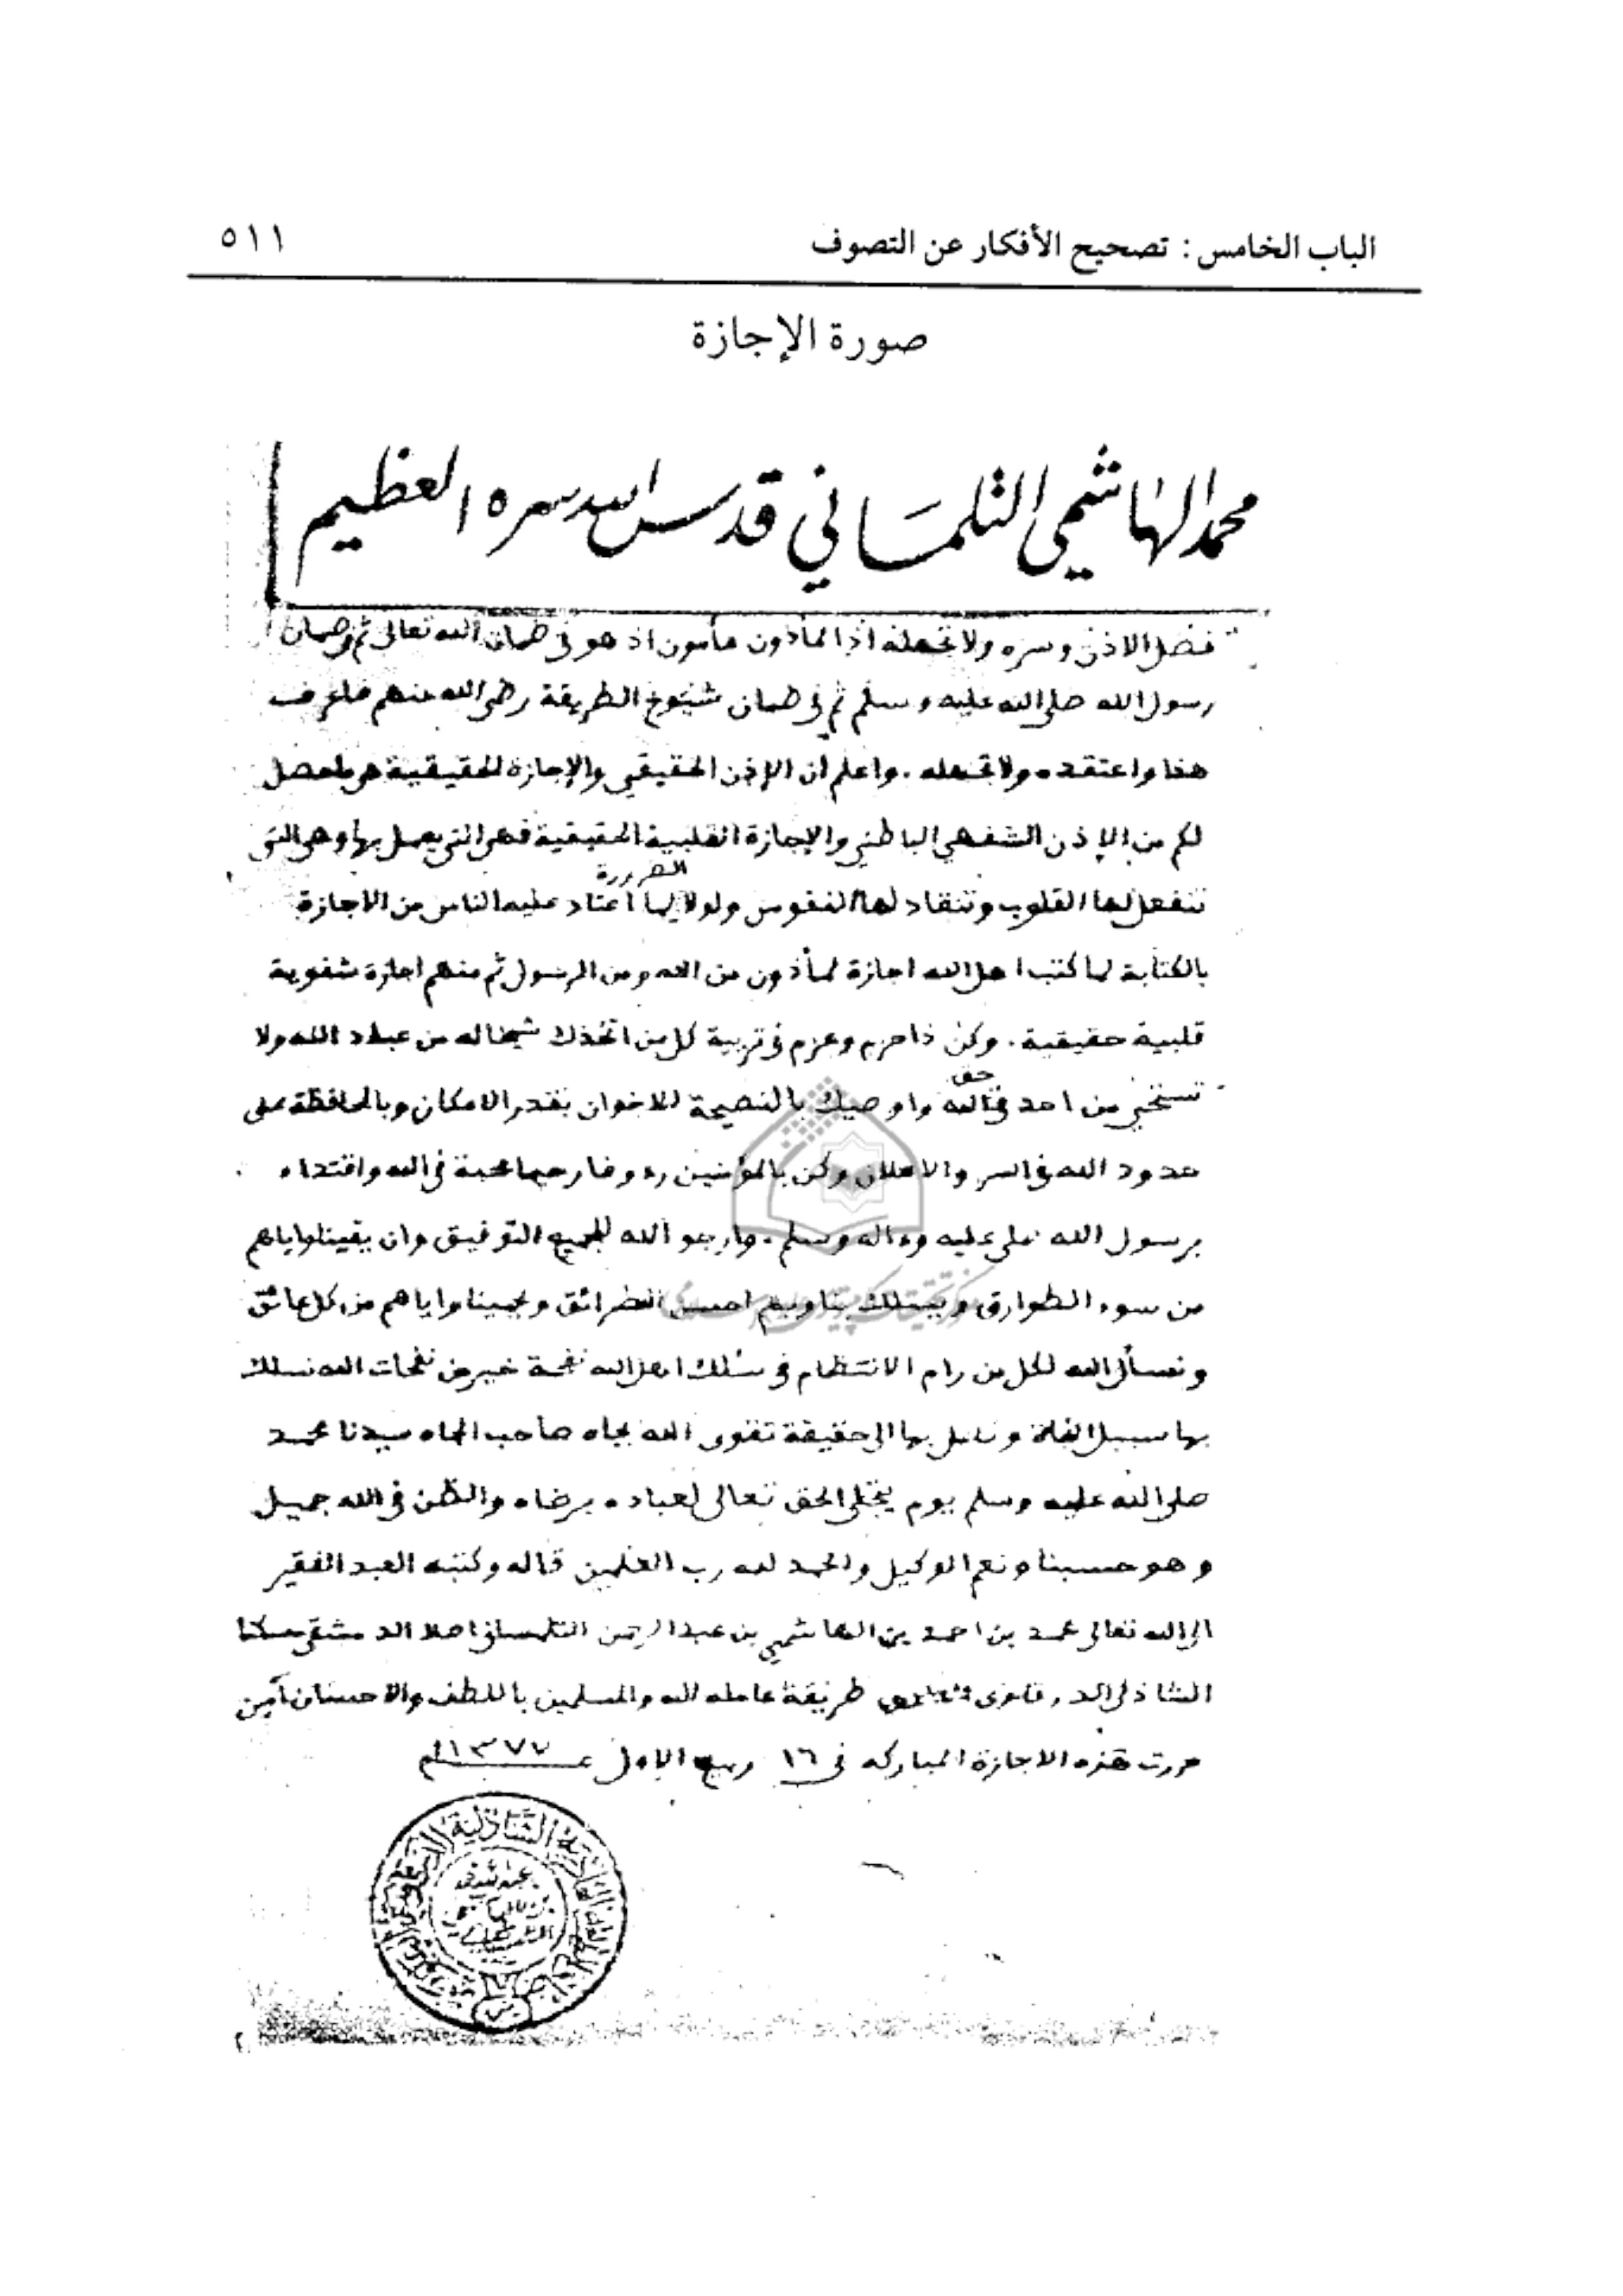 الباب الخامس : تصحيح الأفكار عن التصوف
٥١١
صورة الإجازة
محمد الهاشمي التلمساني قدس الله سره العظيم
فضل الاذن وسره ولا تجهله اذ المأذون مأمون اذ هو في ضمان الله تعالى ثم في ضمان
رسول الله صلى الله عليه وسلم ثم في ضمان شيوخ الطريقة رضي الله عنهم فاعرف
هذا واعتقده ولا تجهله . واعلم أن الإذن الحقيقي والإجازة الحقيقية هي ما حصل
لكم من الإذن الشفهي الباطني والإجازة القلبية الحقيقية فهي التي يعمل بها وهي التي
تنفعل لها القلوب وتنقاد لها النفوس ولولا الضرورة لما اعتاد عليه الناس من الاجازة
بالكتابة لما كتب اهل الله اجازة لمأذون من الله ومن الرسول ثم منهم اجازة شفوية
قلبية حقيقية . وكن ذا حزم وعزم في تربية كل من اتخذك شيخا له من عباد الله ولا
تستحي من احد في حق الله واوصيك بالنصيحة للاخوان بقدر الامكان وبالمحافظة على
حدود الله في السر والاعلان وكن بالمؤمنين رءوفا رحيما محبة في الله واقتداء
برسول الله صلى عليه وءاله وسلم . وارجو الله للجميع التوفيق وان يقينا واياهم
من سوء الطوارق ويسلك بنا وبهم احسن الطرائق ويحمينا واياهم من كل عائق
ونسأل الله لكل من رام الانتظام في سلك اهل الله نفحة خير من نفحات الله نسلك
بها سبيل النجاة ونصل بها الى حقيقة تقوى الله بجاه صاحب الجاه سيدنا محمد
صلى الله عليه وسلم يوم يتجلى الحق تعالى لعباده برضاه والظن في الله جميل
وهو حسبنا ونعم الوكيل والحمد لله رب العلمين قاله وكتبه العبد الفقير
الى الله تعالى محمد بن احمد بن الهاشمي بن عبد الرحمن التلمساني اصلا الدمشقي مسكنا
الشاذلي الدرقاوي طريقة عامله الله والمسلمين باللطف والاحسان آمين
حررت هذه الاجازة المباركه في ١٦ ربيع الاول ١٣٧٧
الشاذلية